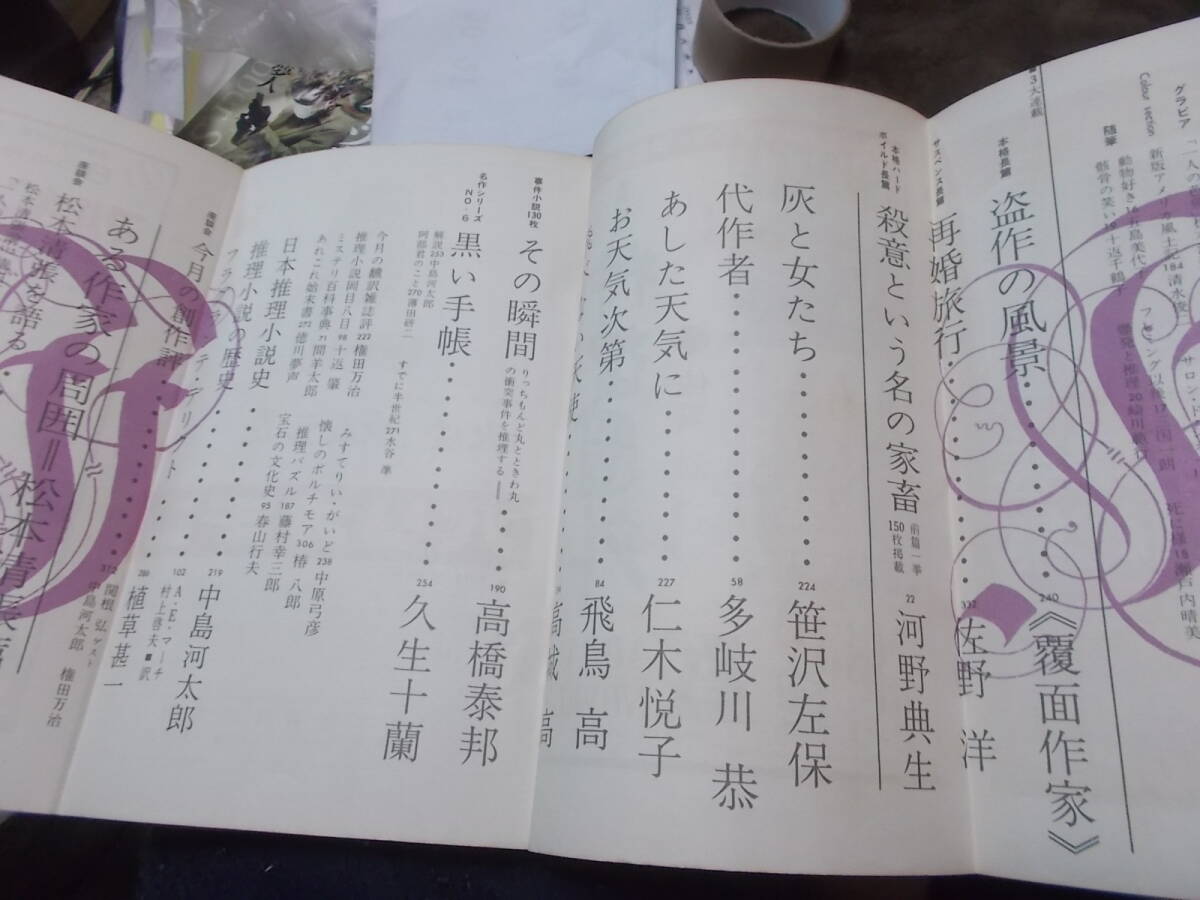 グラビア
Colour section
新版アメリカ風土記 184 清水俊二
随筆
骸骨の笑い 19 十返千鶴子
3大連載
本格長篇
盗作の風景 240 《覆面作家》
サスペンス長篇
再婚旅行 332 佐野 洋
本格ハードボイルド長篇
殺意という名の家畜 前篇一挙150枚掲載 22 河野典生
灰と女たち 224 笹沢左保
代作者 58 多岐川 恭
あした天気に 227 仁木悦子
お天気次第 84 飛鳥 高
事件小説130枚
その瞬間 りっちもんど丸とときわ丸の衝突事件を推理する 190 高橋泰邦
名作シリーズ NO・6
黒い手帳 254 久生十蘭
解説 253 中島河太郎
阿部君のこと 270 薄田研二
すでに半世紀 271 水谷 準
今月の翻訳雑誌評 222 権田万治
推理小説岡目八目 98 十返 肇
ミステリ百科事典 71 間羊太郎
あれこれ始末書 272 徳川夢声
みすてりい・がいど 238 中原弓彦
懐しのボルチモア 306 椿 八郎
推理パズル 187 藤村幸三郎
宝石の文化史 95 春山行夫
日本推理小説史 219 中島河太郎
推理小説の歴史 102 A・E・マーチ 村上啓夫■訳
フラグランテ・デリクト 280 植草甚一
座談会
今月の創作評 312 関根 弘 ゲスト 中島河太郎 権田万治
ある作家の周囲＝松本清張篇
座談会
松本清張を語る